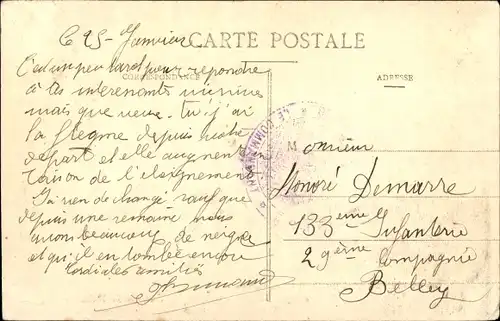 Ce 25 Janvier
CARTE POSTALE
CORRESPONDANCE
ADRESSE
C'est un peu tard pour repondre
à tes interesants
mais que veux-tu j'ai
la flegme depuis votre
départ et elle augmente en
raison de l'eloignement
J'ai rien de changé sauf que
depuis une semaine nous
avons beaucoup de neige
et qu'il en tombe encore
Cordiales amitiés
LE COMMANDANT
Monsieur
Honoré Demarre
133 ième Infanterie
2 gème Compagnie
Belley